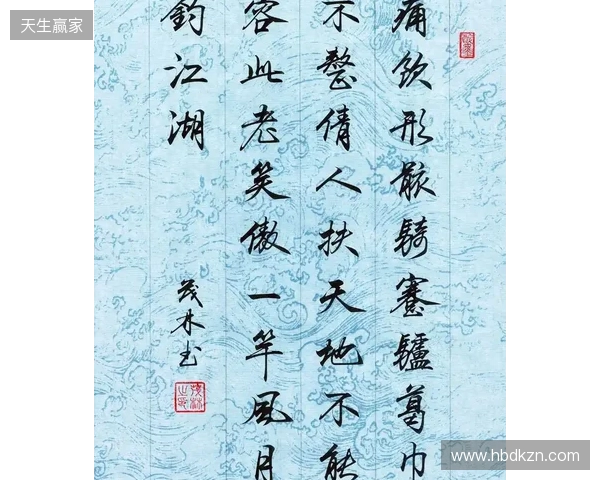 天生赢家
痛饮形骸騎蹇驢葛巾
不整倩人扶天地不能
容此老笑傲一竿風月
釣江湖
茂林书
www.hbdkzn.com